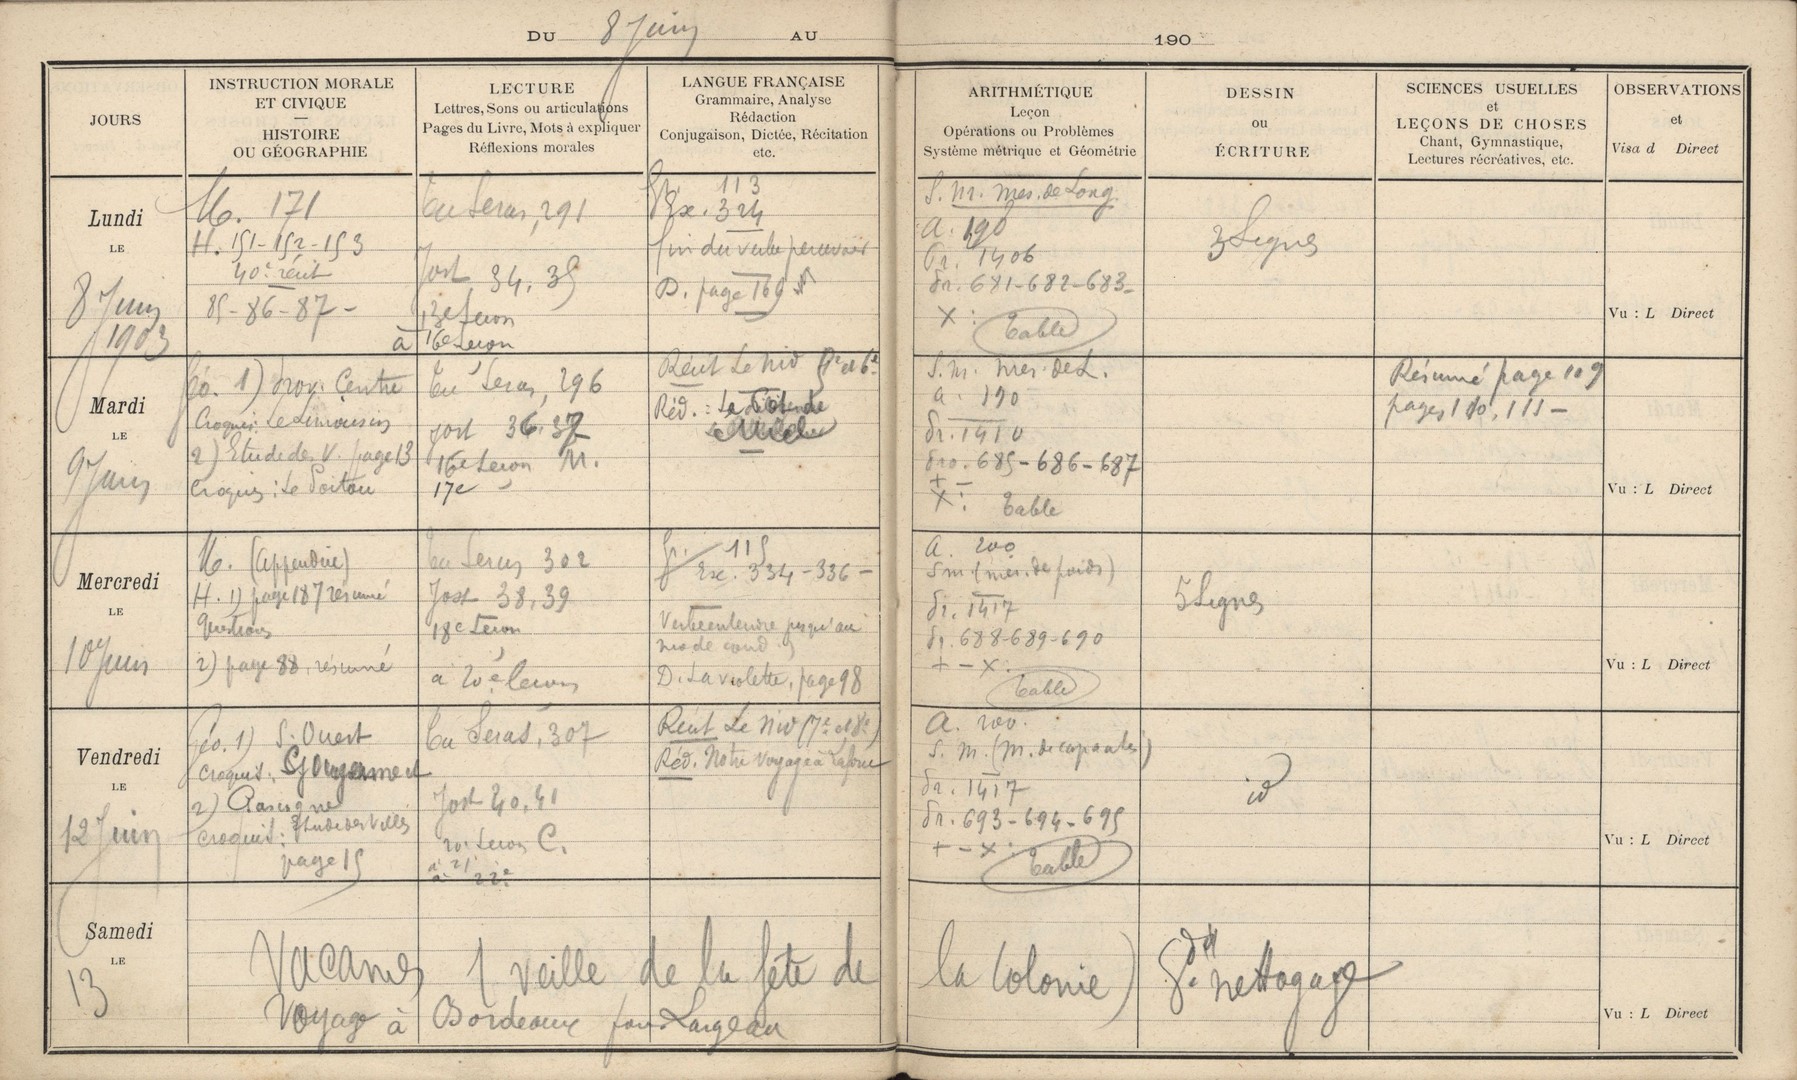 DU 8 Juin AU 190
JOURS
INSTRUCTION MORALE
ET CIVIQUE
HISTOIRE
OU GÉOGRAPHIE
LECTURE
Lettres, Sons ou articulations
Pages du Livre, Mots à expliquer
Réflexions morales
LANGUE FRANÇAISE
Grammaire, Analyse
Rédaction
Conjugaison, Dictée, Récitation
etc.
ARITHMÉTIQUE
Leçon
Opérations ou Problèmes
Système métrique et Géométrie
DESSIN
ou
ÉCRITURE
SCIENCES USUELLES
et
LEÇONS DE CHOSES
Chant, Gymnastique,
Lectures récréatives, etc.
OBSERVATIONS
et
Visa d Direct
Lundi
LE
8 Juin
1903
M. 171
H. 151-152-153
40e récit
85-86-87-
Tu Seras, 291
Jost 34, 35
13e Leçon
à 16e Leçon
Gr. 113
Ex. 324
fin du verbe percevoir
D. page 169
S. m. mes. de Long.
A. 190
Pr. 1406
Pr. 681-682-683-
× : Table
3 Lignes
Vu : L Direct
Mardi
LE
9 Juin
Géo. 1) prov. Centre
Croquis: Le Limousin
2) Etude des V. page 13
Croquis: Le Poitou
Tu Seras, 296
Jost 36.37
16e Leçon M.
17e
Récit Le Nid 5e et 6e
Réd. :
S. m. mes. de L.
A. 190
Pr. 1410
Pro. 685-686-687
+ -
× : Table
Résumé page 109
pages 110, 111 -
Vu : L Direct
Mercredi
LE
10 Juin
M. (Appendice)
H. 1) page 187 résumé
Questions
2) page 88, résumé
Tu Seras 302
Jost 38, 39
18e Leçon
à 20e leçon
Gr. 115
Ex. 334-336-
Verbe entendre jusqu'au
mode cond.
D. La violette, page 98
A. 200
S m. (mes. de poids)
Pr. 1417
Pr. 688-689-690
+ - × :
Table
5 Lignes
Vu : L Direct
Vendredi
LE
12 Juin
Géo. 1) S. Ouest
Croquis: Guyenne et
2) Gascogne
Croquis: Etude des Villes
page 15
Tu Seras, 307
Jost 40, 41
20e Leçon C.
à 21
à 22e
Récit Le Nid (7e et 8e)
Réd. Notre voyage à
A. 200.
S. M. (M. de capacités)
Pr. 1417
Pr. 693-694-695
+ - × :
Table
id
Vu : L Direct
Samedi
LE
13
Vacances ( veille de la fête de la Colonie)
nettoyage
Voyage à Bordeaux pour Largeau
Vu : L Direct